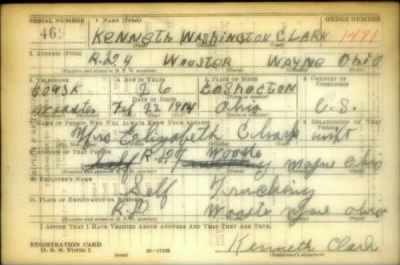 SERIAL NUMBER 1. NAME (Print) ORDER NUMBER
469 KENNETH WASHINGTON CLARK 1471
2. ADDRESS (Print)
R.D. 4 WOOSTER WAYNE OHIO
3. TELEPHONE 4. AGE IN YEARS 5. PLACE OF BIRTH 6. COUNTRY OF CITIZENSHIP
26 COSHOCTON
DATE OF BIRTH
Wooster Feb 22 1914 Ohio U.S.
7. NAME OF PERSON WHO WILL ALWAYS KNOW YOUR ADDRESS 8. RELATIONSHIP OF THAT PERSON
Mrs Elizabeth Clark wife
9. ADDRESS OF THAT PERSON
Wooster Wayne Ohio
10. EMPLOYER'S NAME
Self Trucking
11. PLACE OF EMPLOYMENT OR BUSINESS
R.D. Wooster Wayne Ohio
I AFFIRM THAT I HAVE VERIFIED ABOVE ANSWERS AND THAT THEY ARE TRUE.
REGISTRATION CARD
D. S. S. FORM 1
Kenneth Clark